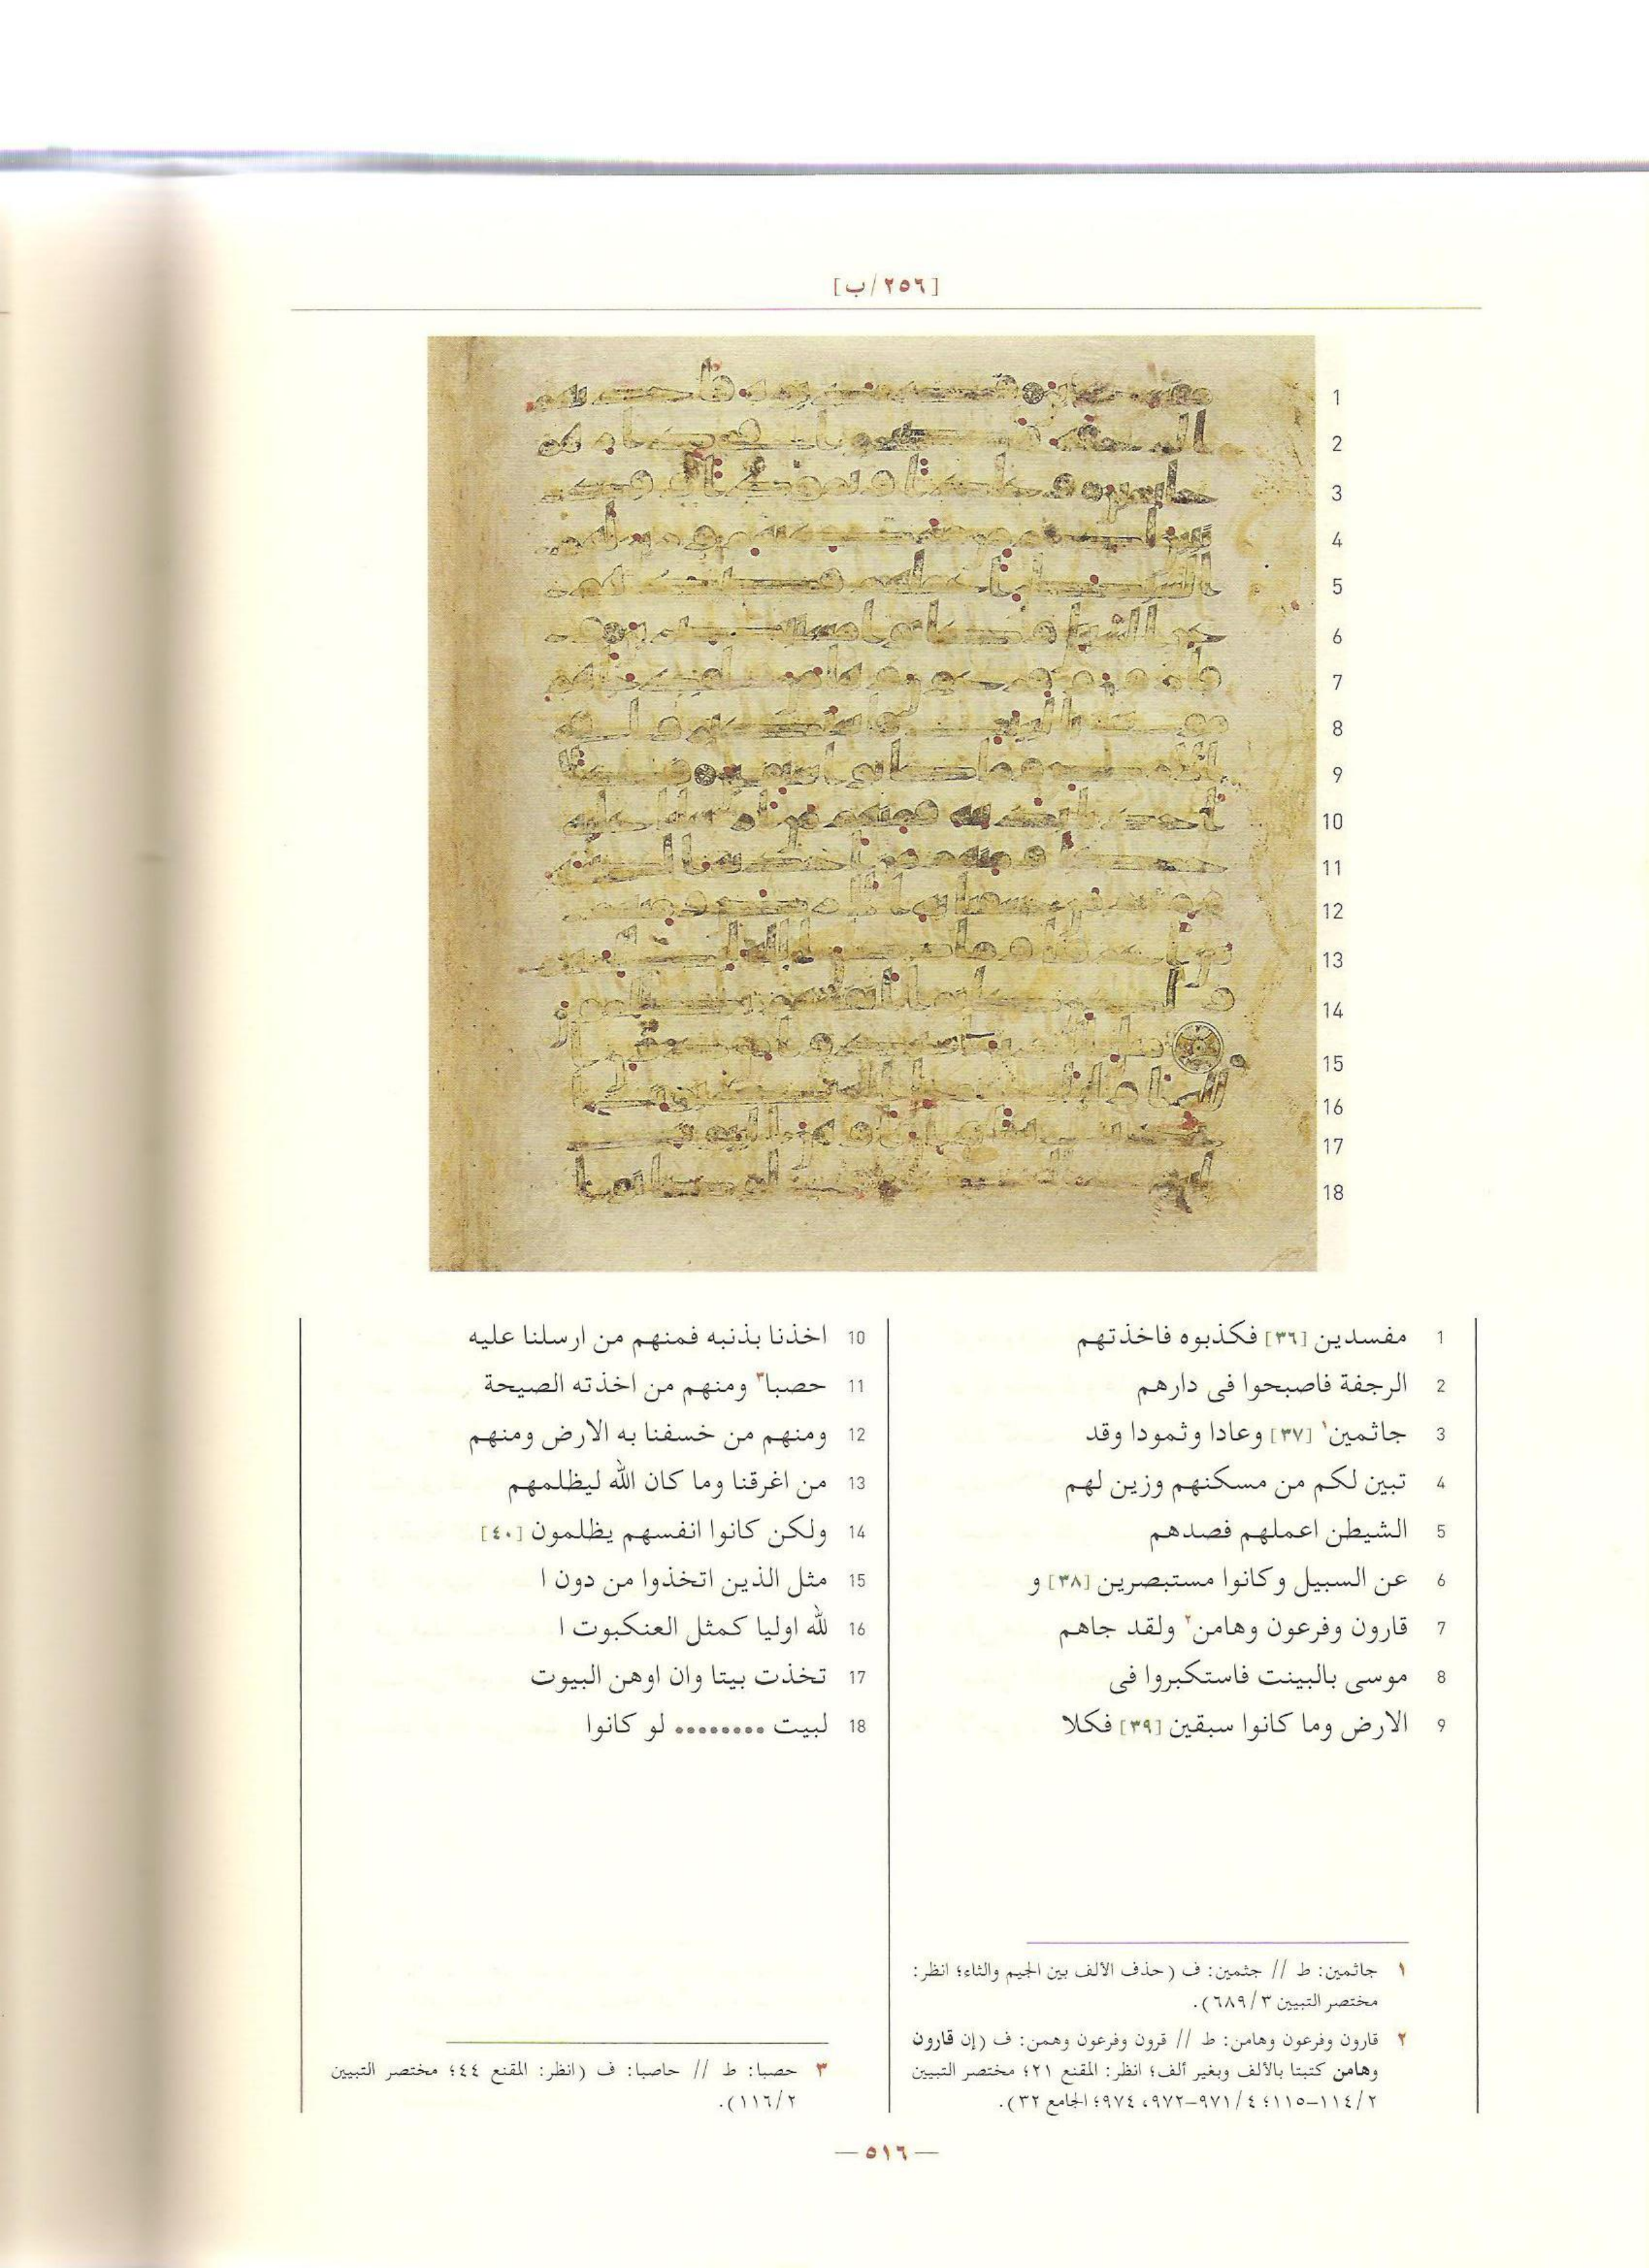 [٢٥٦/ب]
1
2
3
4
5
6
7
8
9
10
11
12
13
14
15
16
17
18
1 مفسدين [٣٦] فكذبوه فاخذتهم
2 الرجفة فاصبحوا فى دارهم
3 جاثمين١ [٣٧] وعادا وثمودا وقد
4 تبين لكم من مسكنهم وزين لهم
5 الشيطن اعملهم فصدهم
6 عن السبيل وكانوا مستبصرين [٣٨] و
7 قارون وفرعون وهامن٢ ولقد جاهم
8 موسى بالبينت فاستكبروا فى
9 الارض وما كانوا سبقين [٣٩] فكلا
10 اخذنا بذنبه فمنهم من ارسلنا عليه
11 حصبا٣ ومنهم من اخذته الصيحة
12 ومنهم من خسفنا به الارض ومنهم
13 من اغرقنا وما كان الله ليظلمهم
14 ولكن كانوا انفسهم يظلمون [٤٠]
15 مثل الذين اتخذوا من دون ا
16 لله اوليا كمثل العنكبوت ا
17 تخذت بيتا وان اوهن البيوت
18 لبيت ........ لو كانوا
١ جاثمين: ط // جثمين: ف (حذف الألف بين الجيم والثاء؛ انظر:
مختصر التبيين ٦٨٩/٣).
٢ قارون وفرعون وهامن: ط // قرون وفرعون وهمن: ف (إن قارون
وهامن كتبتا بالألف وبغير ألف؛ انظر: المقنع ٢١؛ مختصر التبيين
١١٤/٢–١١٥؛ ٩٧١/٤–٩٧٢، ٩٧٤؛ الجامع ٣٢).
٣ حصبا: ط // حاصبا: ف (انظر: المقنع ٤٤؛ مختصر التبيين
١١٦/٢).
— ٥١٦ —